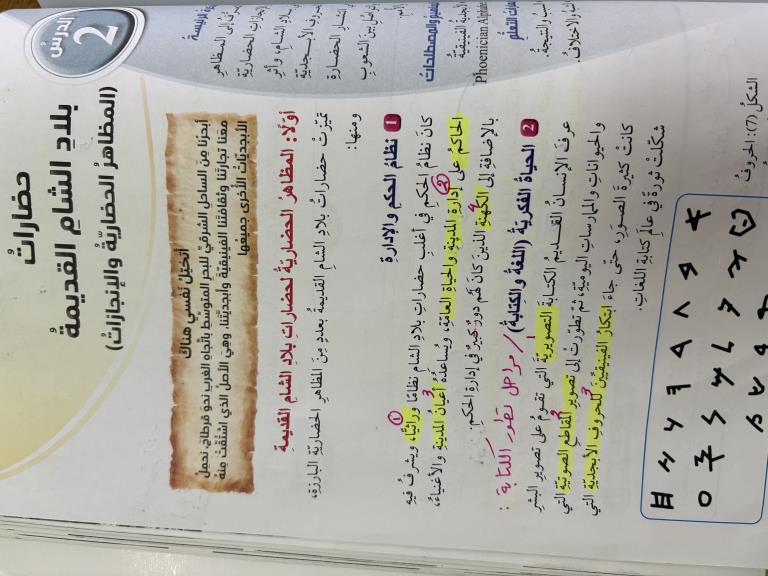 الدرس
2
حضاراتُ
بلادِ الشامِ القديمةُ
(المظاهرُ الحضاريّةُ والإنجازاتُ)
أتخيّل نفسي هناك
أبحرنا مِنَ الساحلِ الشرقيِّ للبحرِ المتوسطِ باتّجاهِ الغربِ نحوَ قرطاجَ، نحملُ
معَنا تجارتَنا وثقافتَنا الفينيقيّةَ وأبجديّتَنا. وهيَ الأصلُ الذي اشتُقَّتْ مِنهُ
الأبجديّاتُ الأخرى جميعُها
أوّلًا: المظاهرُ الحضاريّةُ لحضاراتِ بلادِ الشامِ القديمةِ
تميّزتْ حضاراتُ بلادِ الشامِ القديمةِ بعددٍ مِنَ المظاهرِ الحضاريّةِ البارزةِ،
ومنها:
1 نظامُ الحكمِ والإدارةِ
كانَ نظامُ الحكمِ في أغلبِ حضاراتِ بلادِ الشامِ نظامًا وراثيًّا، ويشرفُ فيهِ
الحاكمُ على إدارةِ المدينةِ والحياةِ العامّةِ، ويساعدُهُ أعيانُ المدينةِ والأغنياءُ،
بالإضافةِ إلى الكهنةِ الذينَ كانَ لهُم دورٌ كبيرٌ في إدارةِ الحكمِ.
2 الحياةُ الفكريّةُ (اللغةُ والكتابةُ) / مراحل تطور الكتابة :
عرفَ الإنسانُ القديمُ الكتابةَ التصويريّةَ التي تقومُ على تصويرِ البشرِ
والحيواناتِ والممارساتِ اليوميّةِ، ثمَّ تطوّرتْ إلى تصويرِ المقاطعِ الصوتيّةِ التي
كانتْ كثيرةَ الصورِ، حتى جاءَ ابتكارُ الفينيقيّينَ للحروفِ الأبجديّةِ التي
شكّلتْ ثورةً في عالمِ كتابةِ اللغاتِ.
الشكلُ (7): الحروفُ
Phoenician Alphabet